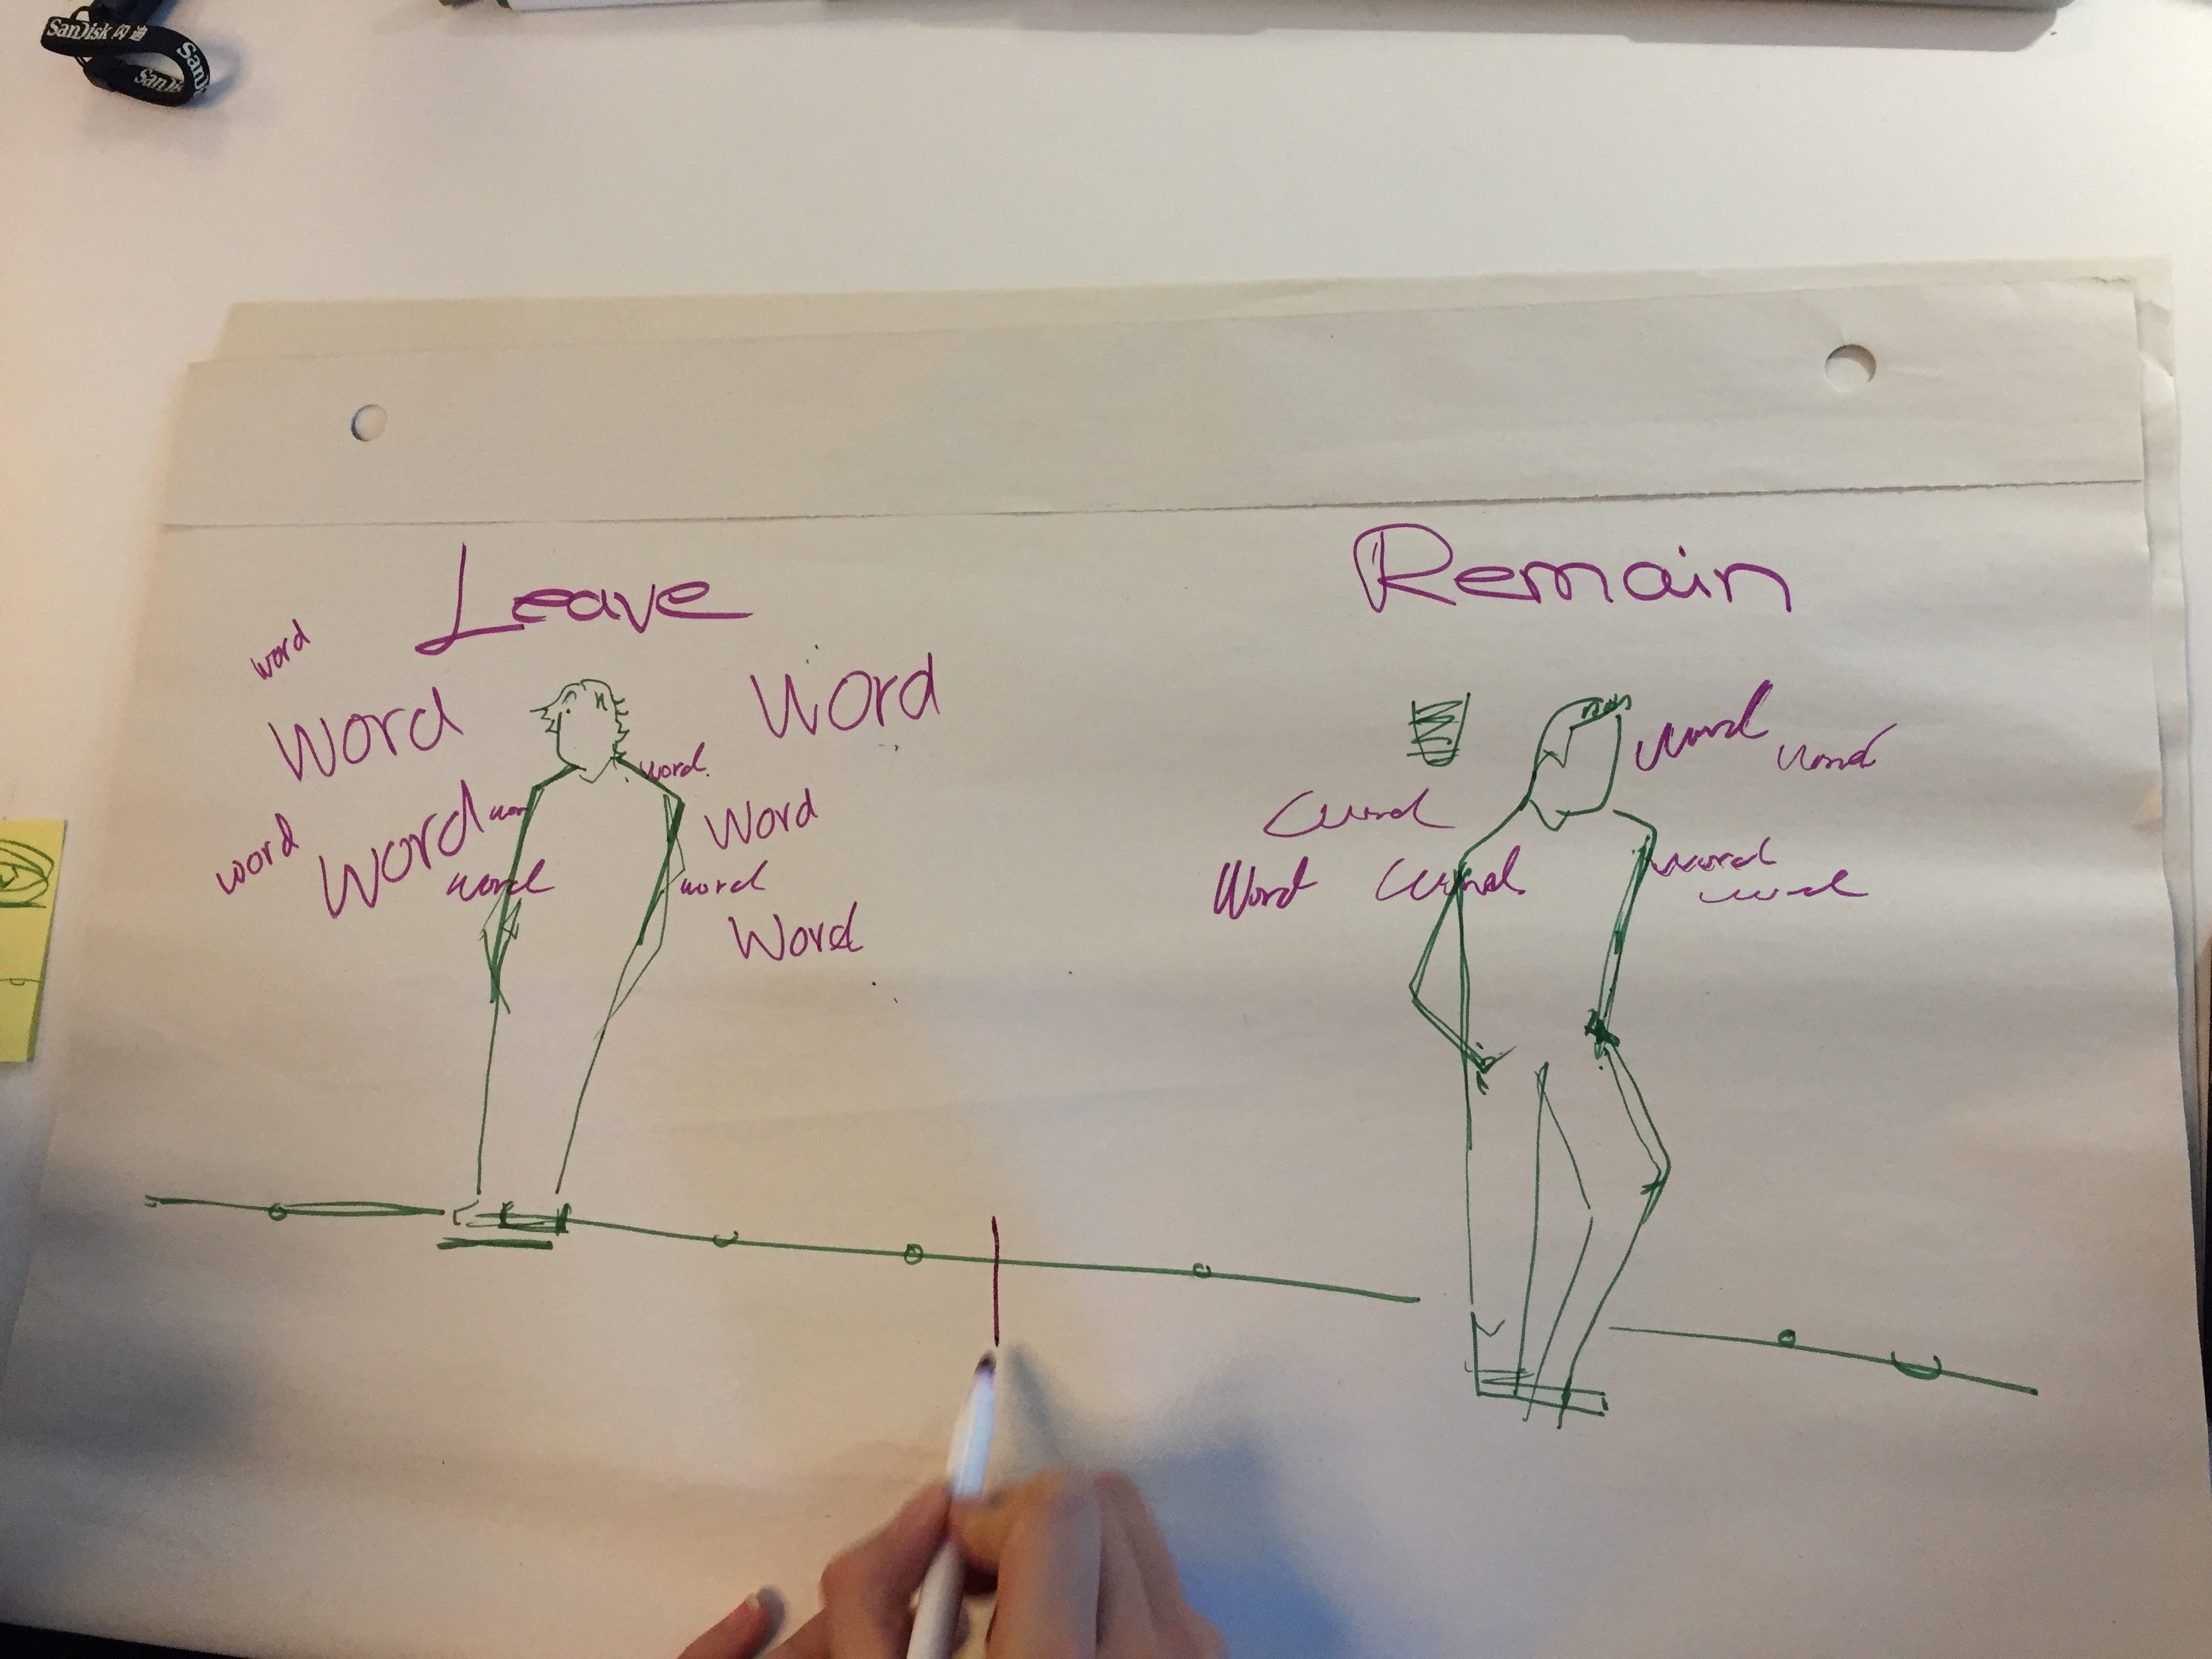 SanDisk 闪迪
SanDisk
SanDis
Leave
Remain
word
Word
word
Word
Word
wor
word
word.
Word
word
Word
word
word
word
Word
word
word
word